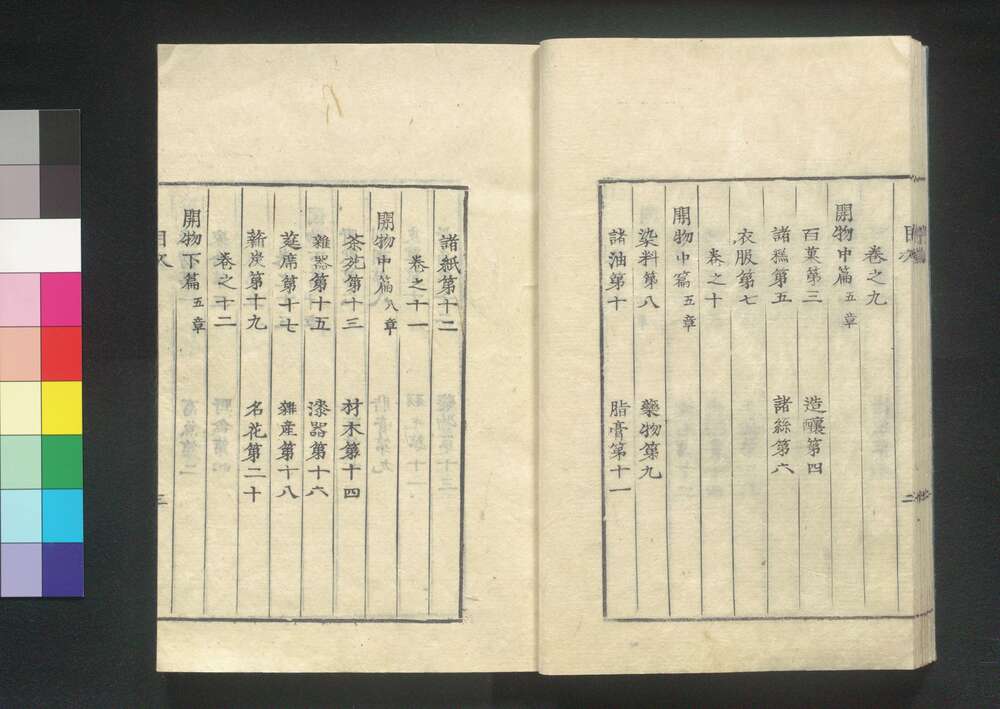 目次
卷之九
開物中篇五章
百菓第三 造釀第四
諸糕第五 諸絲第六
衣服第七
卷之十
開物中篇五章
染料第八 藥物第九
諸油第十 脂膏第十一
二
諸紙第十二
卷之十一
開物中篇八章
茶苑第十三 材木第十四
雜器第十五 漆器第十六
莚席第十七 雜産第十八
薪炭第十九 名花第二十
卷之十二
開物下篇五章
目次
三